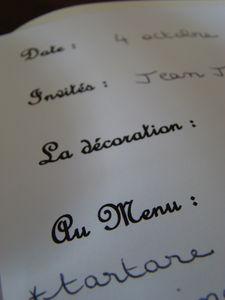 Date : 4 octobre
Invités : Jean J
La décoration :
Au Menu :
* tartare